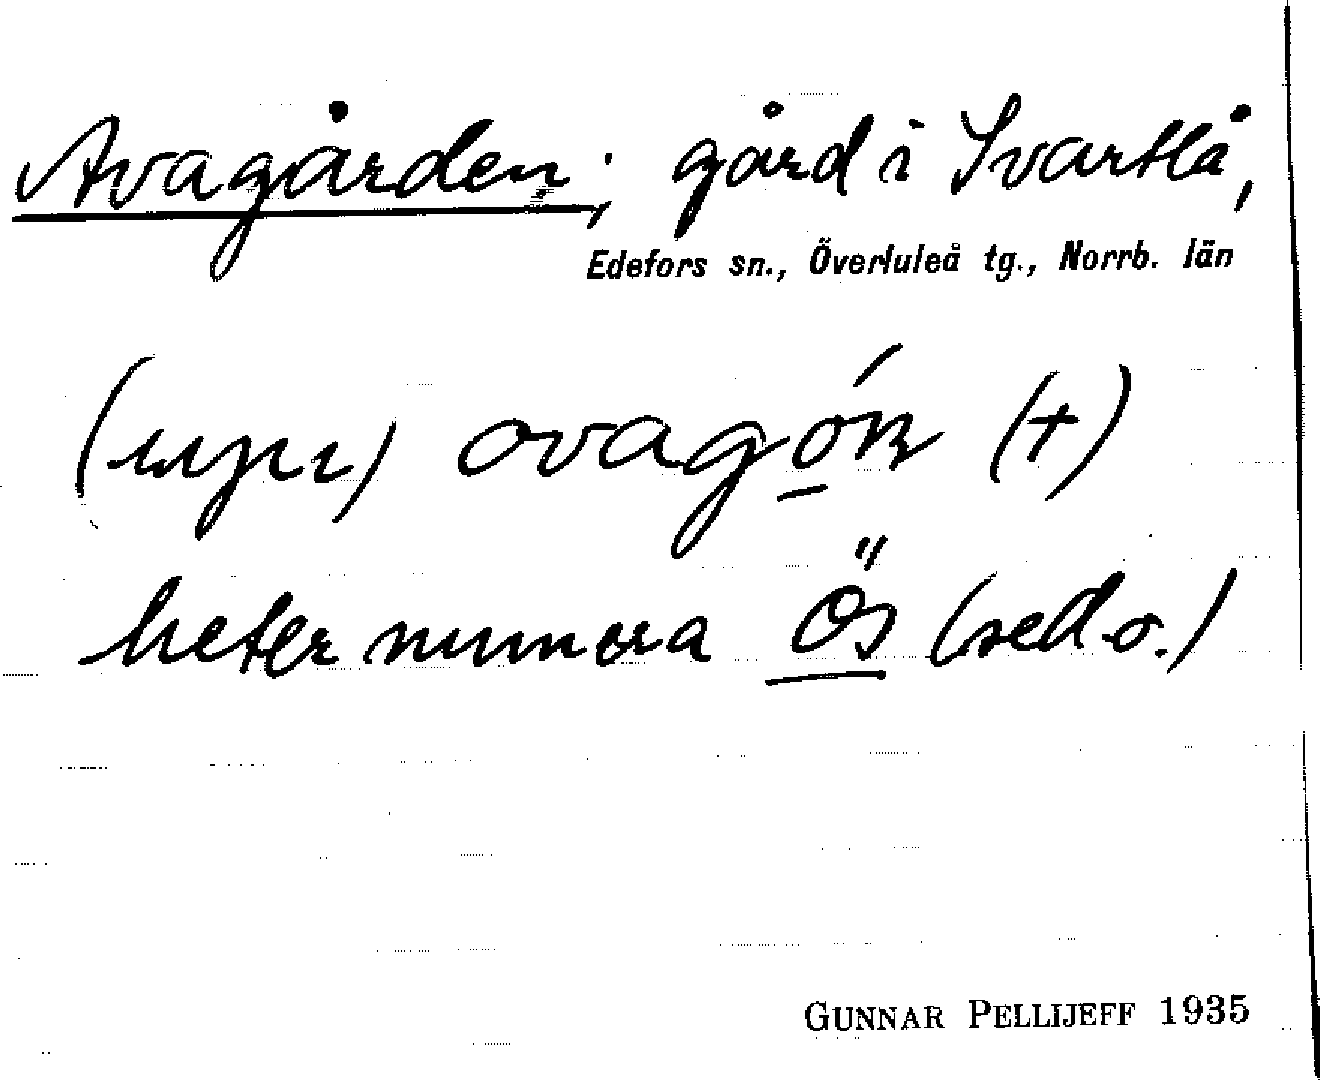 Avagården; gård i Svartlå,
Edefors sn., Överluleå tg., Norrb. län
(+)
heter numera Ös (sed.o.)
GUNNAR PELLIJEFF 1935